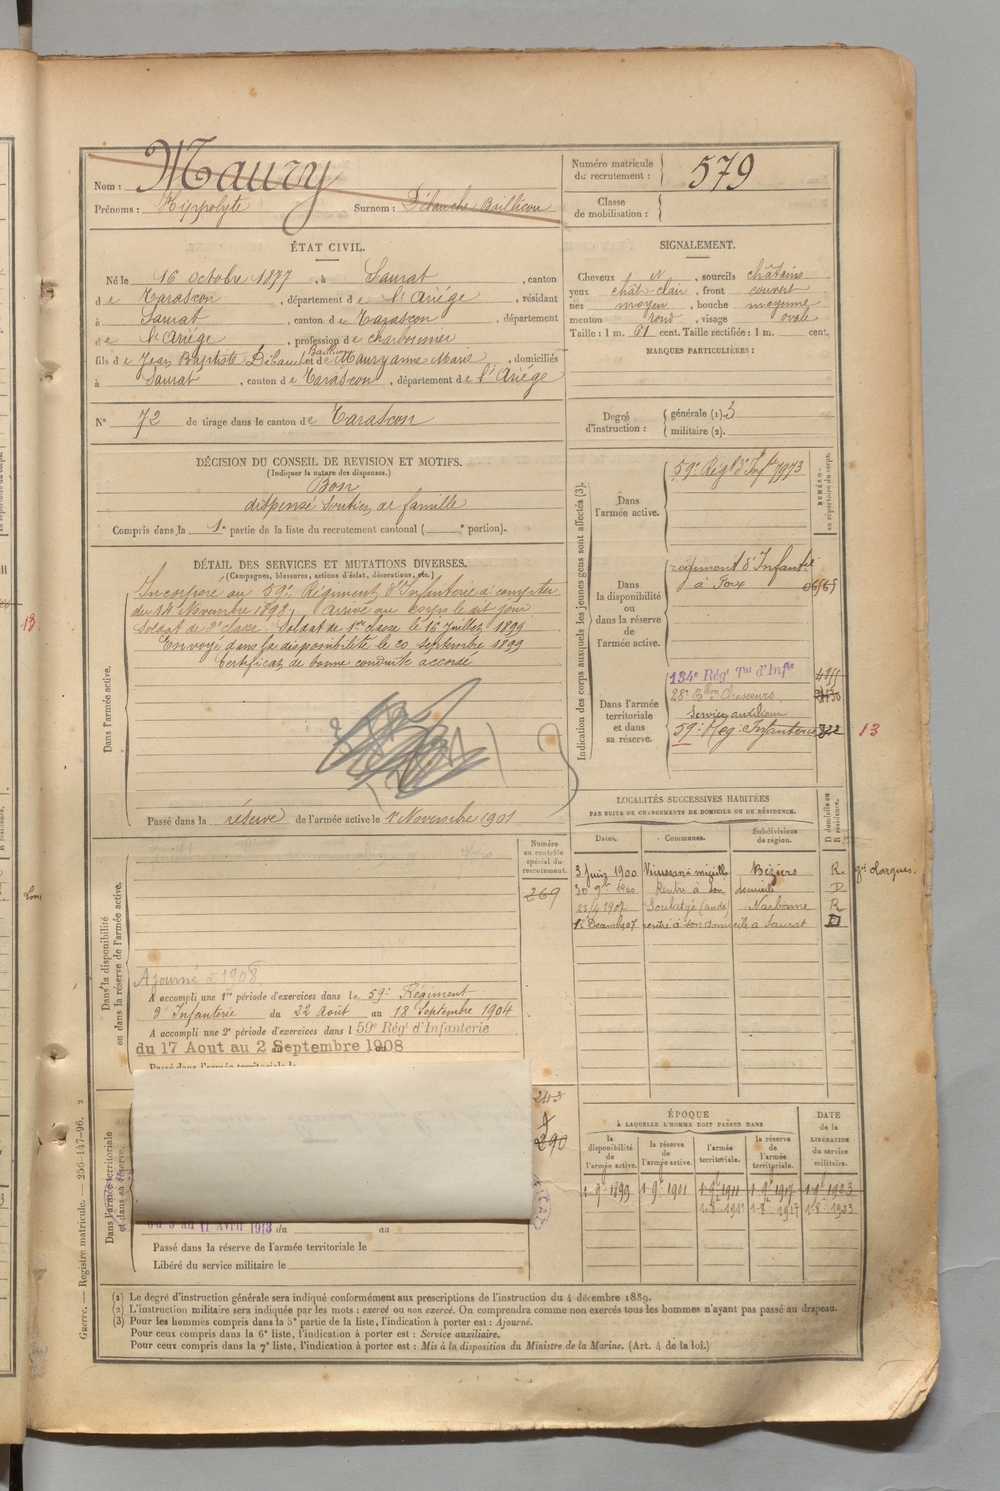 Nom : Maury
Prénoms : Hippolyte Surnom : Débauche Baillicou
Numéro matricule du recrutement : 579
Classe de mobilisation :
ÉTAT CIVIL.
Né le 16 octobre 1877, à Saurat, canton
de Tarascon, département de l'Ariége, résidant
à Saurat, canton de Tarascon, département
de l'Ariége, profession de charbonnier
fils de Jean Baptiste et de Maury anne Marie, domiciliés
à Saurat, canton de Tarascon, département de l'Ariége
N° 72 de tirage dans le canton de Tarascon
SIGNALEMENT.
Cheveux N, sourcils châtains
yeux chât-clair, front couvert
nez moyen, bouche moyenne
menton rond, visage ovale
Taille : 1 m. 61 cent. Taille rectifiée : 1 m. cent.
MARQUES PARTICULIÈRES :
Degré d'instruction : générale (1). 3
militaire (2).
DÉCISION DU CONSEIL DE REVISION ET MOTIFS.
(Indiquer la nature des dispenses.)
Bon
dispensé soutien de famille
Compris dans la 1e partie de la liste du recrutement cantonal ( e portion).
DÉTAIL DES SERVICES ET MUTATIONS DIVERSES.
(Campagnes, blessures, actions d'éclat, décorations, etc.)
Dans l'armée active.
Incorporé au 59e Régiment d'Infanterie à compter
du 14 Novembre 1898, Arrivé au corps le dit jour
Soldat de 2e classe. Soldat de 1re classe le 16 Juillet 1899
Envoyé dans la disponibilité le 20 Septembre 1899
Certificat de bonne conduite accordé
Passé dans la réserve de l'armée active le 1er Novembre 1901
Indication des corps auxquels les jeunes gens sont affectés (3).
NUMÉRO au répertoire du corps.
Dans l'armée active.
59e Régt d'Inftie 7973
Dans la disponibilité ou dans la réserve de l'armée active.
régiment d'Infantie
à Foix
Dans l'armée territoriale et dans sa réserve.
134e Régt Tal d'Infie
28e Bton Chasseurs
Service auxiliaire
59e Reg. Infanterie 822 13
LOCALITÉS SUCCESSIVES HABITÉES
PAR SUITE DE CHANGEMENTS DE DOMICILE OU DE RÉSIDENCE.
Dates. Communes. Subdivisions de région. D domicile ou R résidence.
3 Juin 1900 Béziers R.
20 9bre 1900 Rentré à son domicile D
23/4 1907 Soulatgé (aude) Narbonne R
1er Décemb 07 rentré à son domicile à Saurat D
Dans la disponibilité ou dans la réserve de l'armée active.
Numéro au contrôle spécial du recrutement.
269
Ajourné à 1908
A accompli une 1re période d'exercices dans le 59e Régiment
d'Infanterie du 22 Août au 18 Septembre 1904
A accompli une 2e période d'exercices dans l 59e Régt d'Infanterie
du 17 Aout au 2 Septembre 1908
Passé dans l'armée territoriale le
Dans l'armée territoriale et dans sa réserve.
243
290
au 11 Avril 1913 du au
Passé dans la réserve de l'armée territoriale le
Libéré du service militaire le
ÉPOQUE
À LAQUELLE L'HOMME DOIT PASSER DANS
la disponibilité de l'armée active. la réserve de l'armée active. l'armée territoriale. la réserve de l'armée territoriale. DATE de la LIBÉRATION du service militaire.
1-9bre 1899 1-9bre 1901 1-9bre 1911 1-9bre 1917 1-9bre 1923
1-8 1911 1-8 1917 1-8 1923
(1) Le degré d'instruction générale sera indiqué conformément aux prescriptions de l'instruction du 4 décembre 1889.
(2) L'instruction militaire sera indiquée par les mots : exercé ou non exercé. On comprendra comme non exercés tous les hommes n'ayant pas passé au drapeau.
(3) Pour les hommes compris dans la 5e partie de la liste, l'indication à porter est : Ajourné.
Pour ceux compris dans la 6e liste, l'indication à porter est : Service auxiliaire.
Pour ceux compris dans la 7e liste, l'indication à porter est : Mis à la disposition du Ministre de la Marine. (Art. 4 de la loi.)
Guerre. — Registre matricule. — 256-147-96. 2